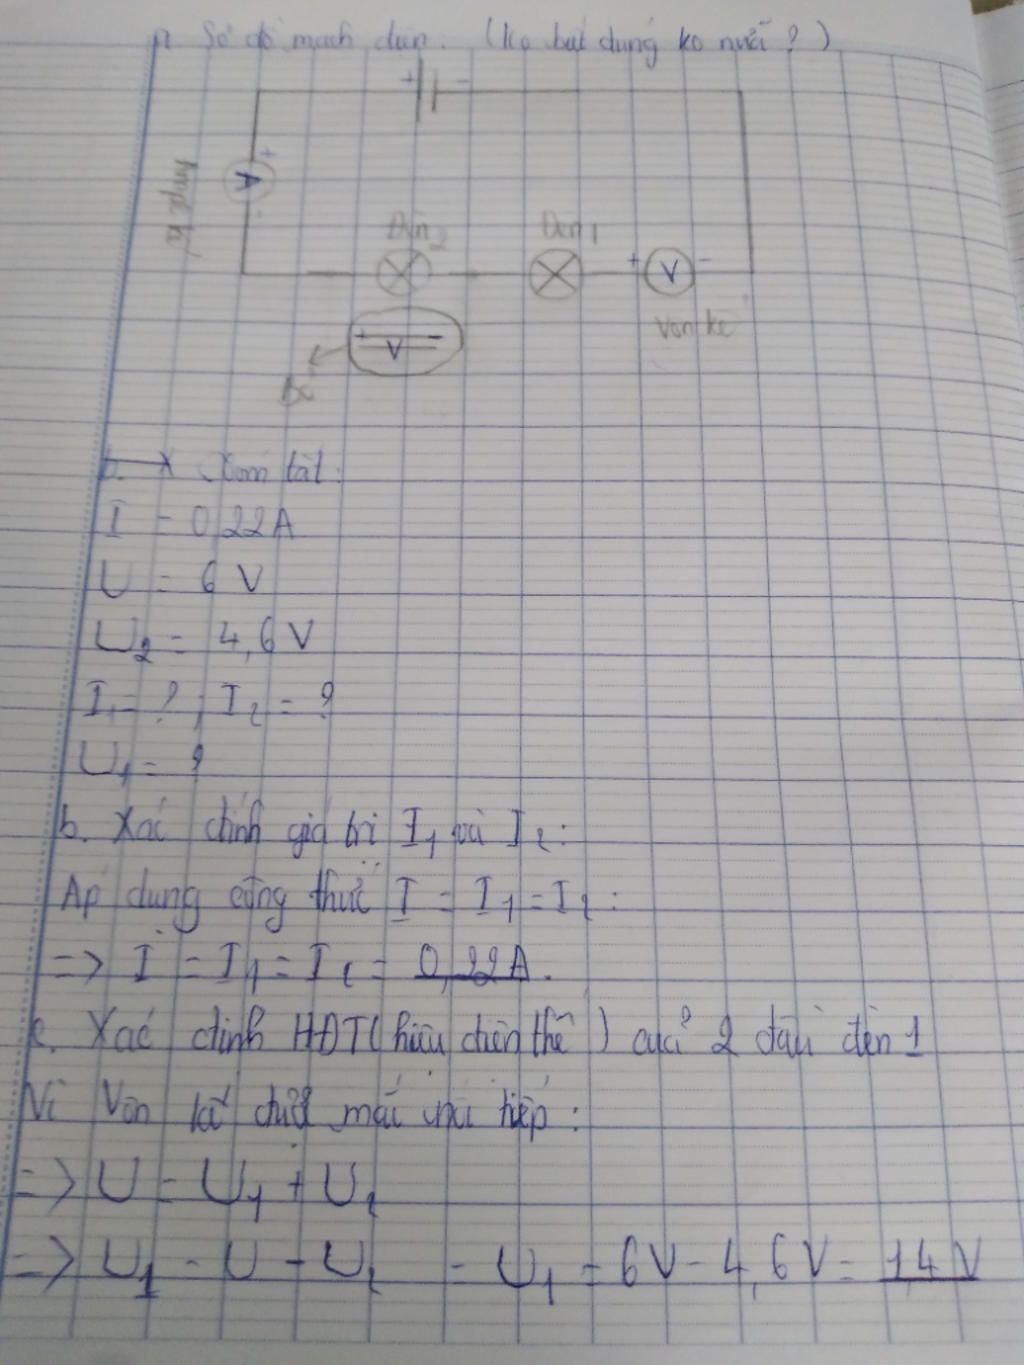 Sơ đồ mạch điện. (Ko bút dùng ko nười ? )
+ -
+
A
-
Ampe kế
Đèn 2 Đèn 1
+ V -
Vôn kế
+ V -
b. * Tóm tắt:
I = 0,22A
U = 6 V
U2 = 4,6 V
I1 = ? ; I2 = ?
U1 = ?
b. Xác định giá trị I1 và I2:
Áp dụng công thức I = I1 = I2:
=> I = I1 = I2 = 0,22A.
c. Xác định HĐT (hiệu điện thế) của 2 đầu đèn 1
Vì Vôn kế được mắc nối tiếp:
=> U = U1 + U2
=> U1 = U - U2 = U1 = 6V - 4,6V = 1,4V